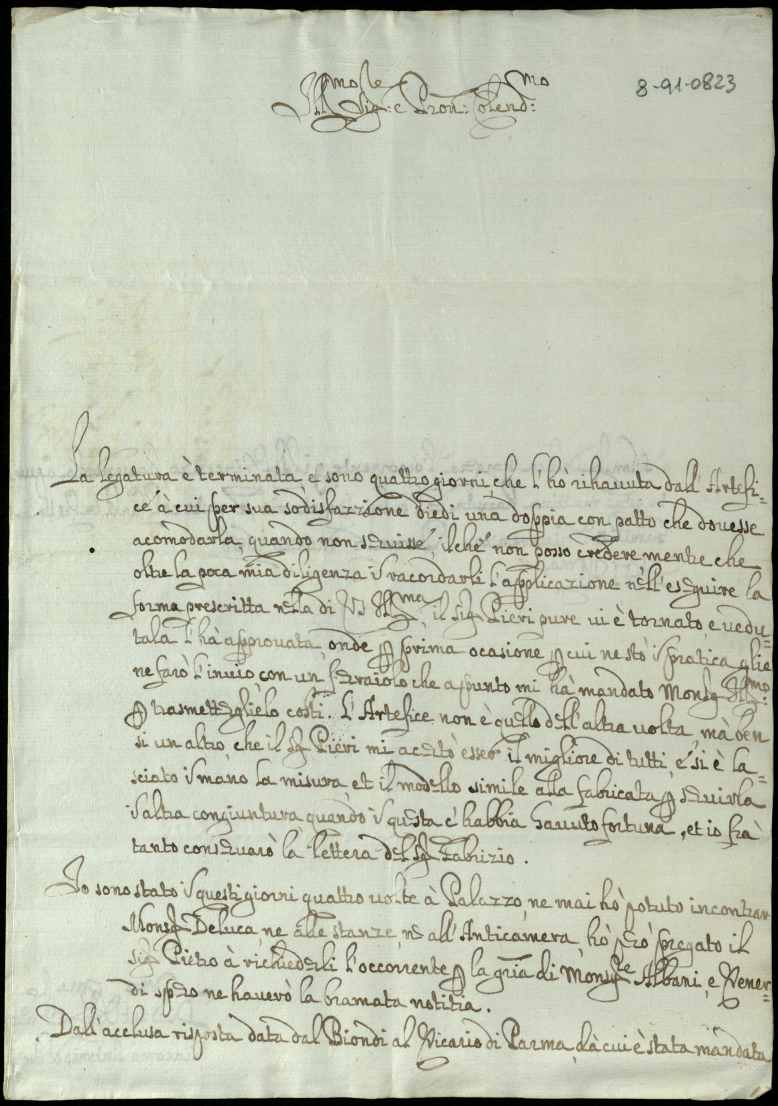 8-91-0823
Ill.mo Sig.re e Pron: Colend.mo
La legatura è terminata e sono quattro giorni che l'hò rihavuta dall'Artefi-
ce à cui per sua sodisfazzione diedi una doppia con patto che dovesse
acomodarla quando non servisse, ilche non posso credere mentre che
oltre la poca mia diligenza in racordarli l'applicazione nell'eseguire la
forma prescritta nella di VS Ill.ma, il Sig. Pieri pure vi è tornato, e vedu-
tala l'hà approvata, onde p prima ocasione p cui ne stò in pratica glie
ne farò l'invio con un feraiolo che apunto mi hà mandato Mons. Ill.mo
p trasmetteglielo costì. L'Artefice non è quello dell'altra volta, mà ben
si un altro che il Sg Pieri mi acertò esser il migliore di tutti, e si è la-
sciato in mano la misura, et il modello simile alla fabricata p servirla
in altra congiuntura quando in questa c'habbia havuto fortuna, et io frà
tanto conservarò la lettera del Sg Fabrizio.
Io sono stato in questi giorni quattro volte à Palazzo, ne mai hò potuto incontrar
Mons. Deluca ne alle stanze, ne all'Anticamera, hò però pregato il
Sig. Pietro à richiederli l'occorrente p la gria di Mons.re Albani, e Vener-
di spero ne haverò la bramata notitia.
Dall'acclusa risposta data dal Biondi al Vicario di Parma, dà cui è stata mandata